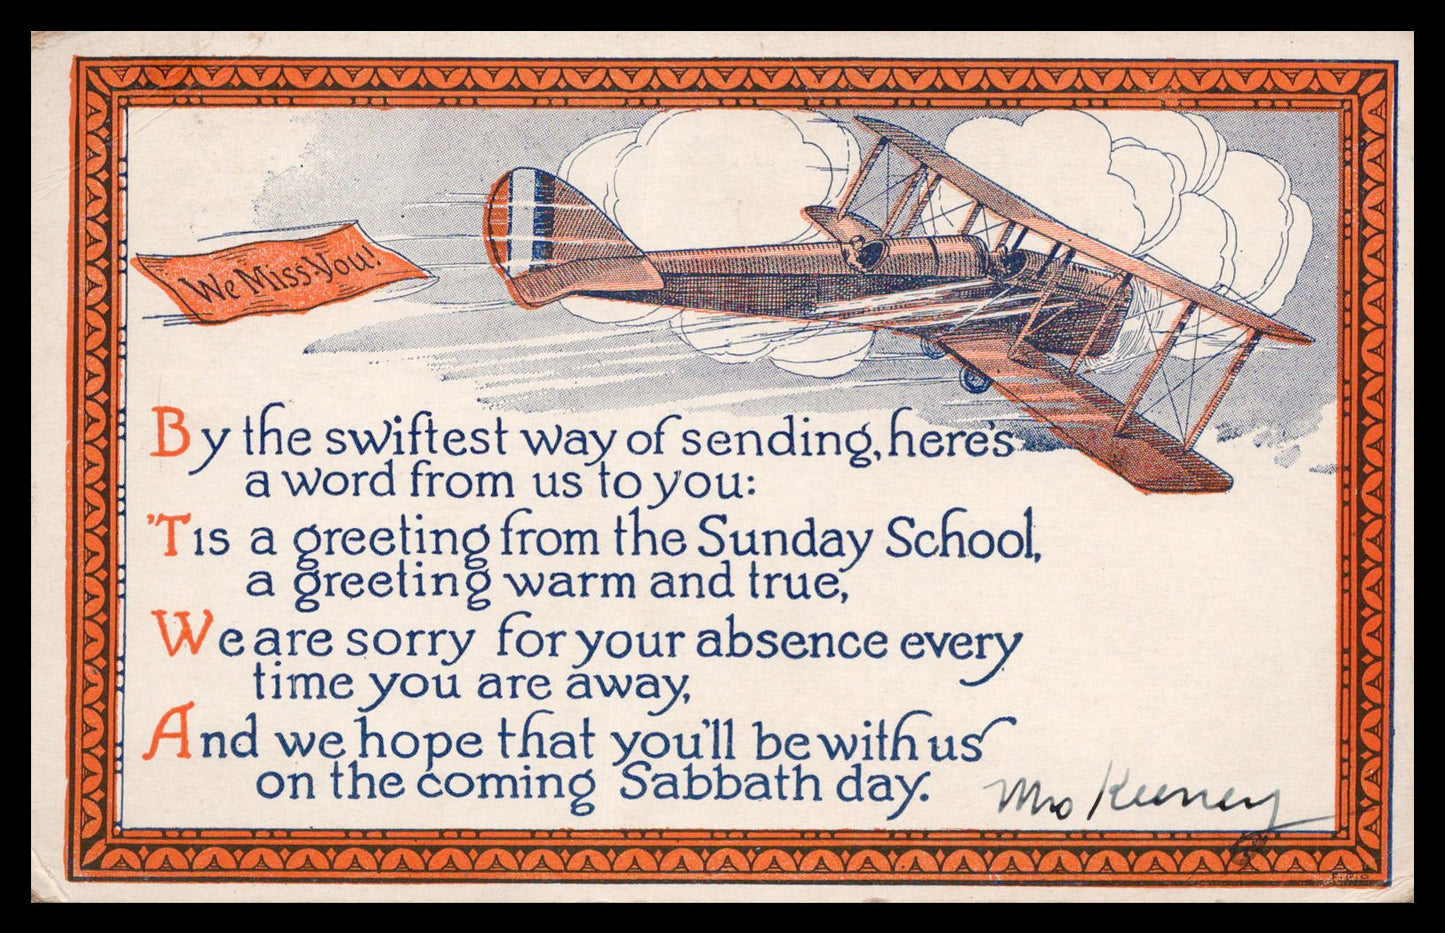 We Miss You!
By the swiftest way of sending, here's
a word from us to you:
'Tis a greeting from the Sunday School,
a greeting warm and true,
We are sorry for your absence every
time you are away,
And we hope that you'll be with us
on the coming Sabbath day.
Mrs Keeney